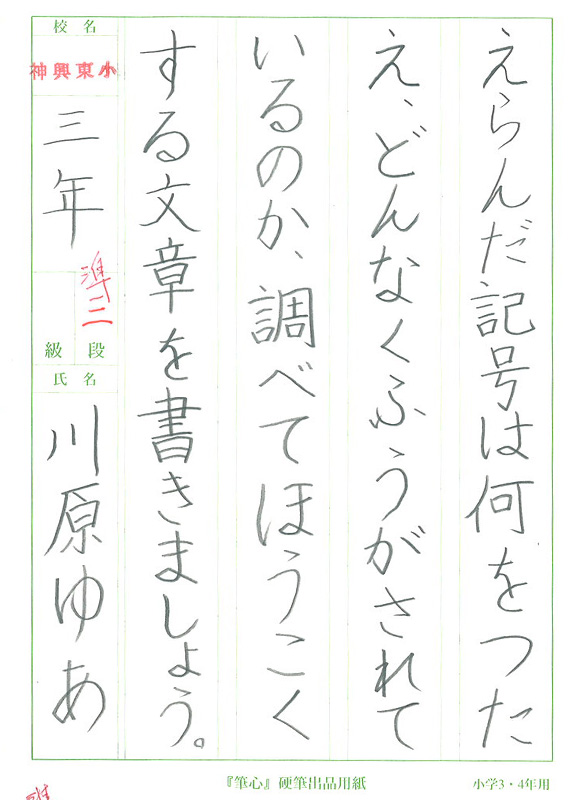 えらんだ記号は何をつた
え、どんなくふうがされて
いるのか、調べてほうこく
する文章を書きましょう。
校名
神興東小
三年
準二
級 段
氏名
川原ゆあ
『筆心』硬筆出品用紙
小学3・4年用